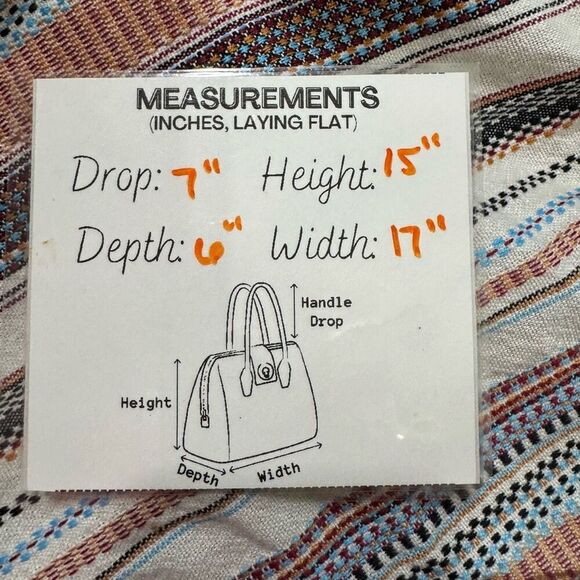 MEASUREMENTS
(INCHES, LAYING FLAT)
Drop: 7" Height: 15"
Depth: 6" Width: 17"
Handle
Drop
Height
Depth Width